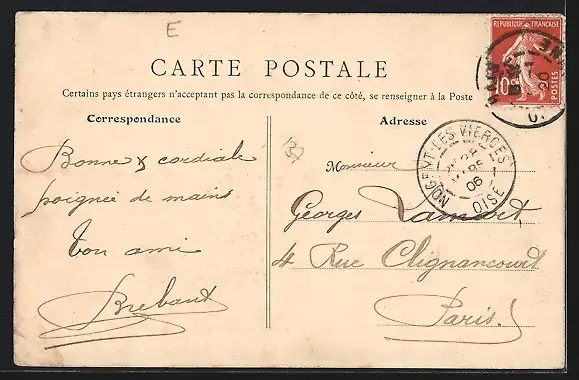 E
RÉPUBLIQUE FRANÇAISE
10c
POSTES
CARTE POSTALE
Certains pays étrangers n'acceptant pas la correspondance de ce côté, se renseigner à la Poste
Correspondance
Adresse
Bonne & cordiale
poignée de mains
Ton ami
Brebant
137
NOGENT-LES-VIERGES
06
OISE
Monsieur
Georges Lambert
4 Rue Clignancourt
Paris